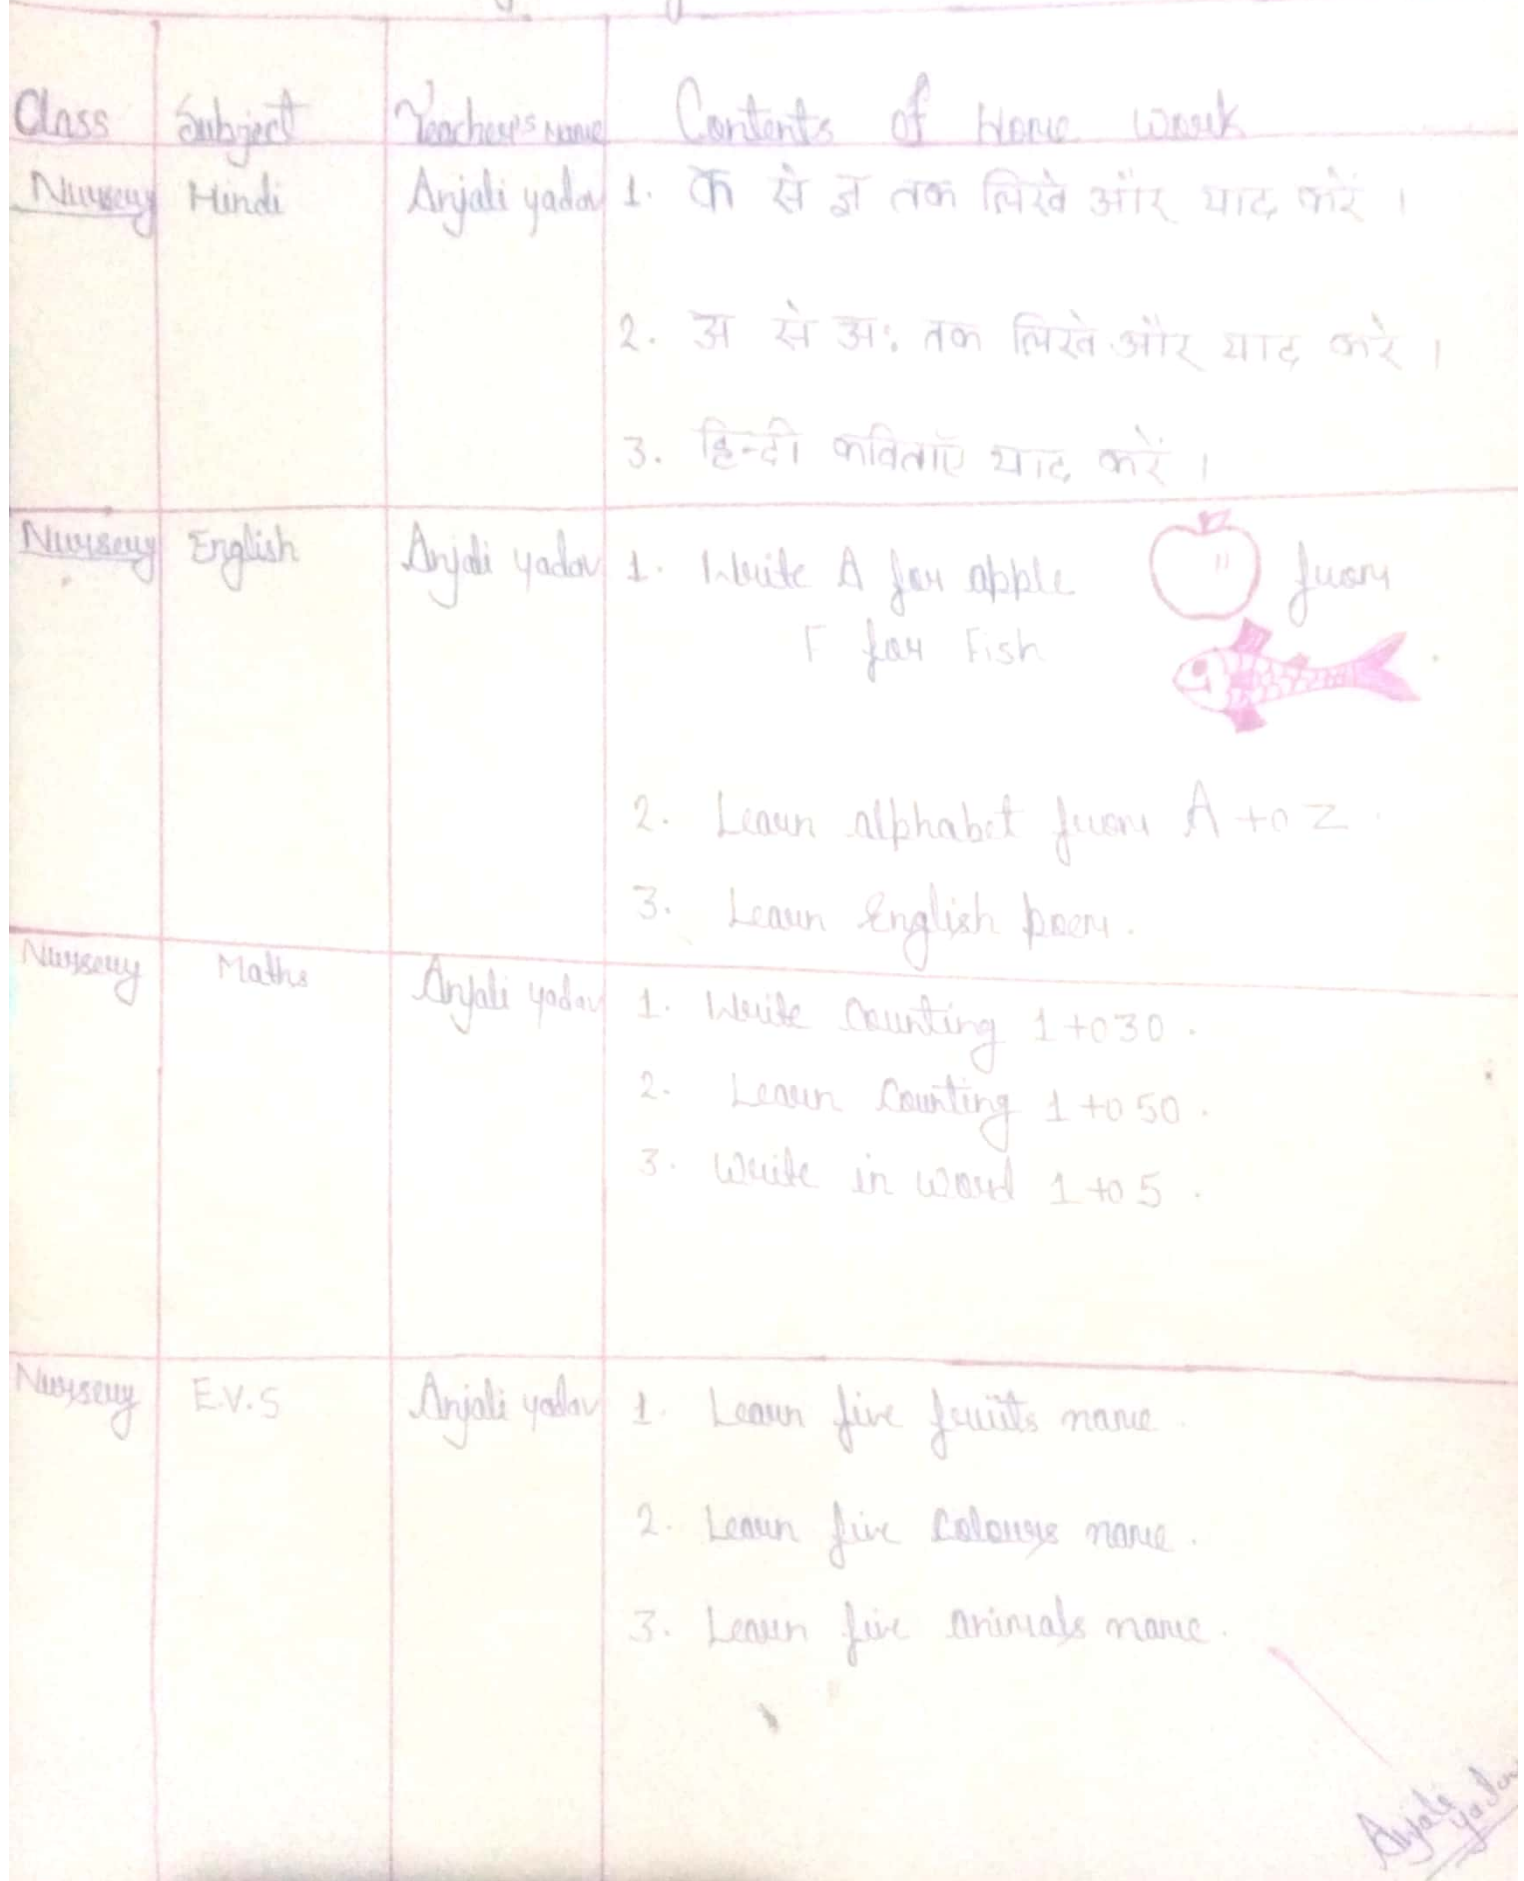 Class Subject Teacher's name Contents of Home work
Nursery Hindi Anjali yadav 1. क से ज्ञ तक लिखे और याद करें ।
2. अ से अः तक लिखे और याद करे ।
3. हिन्दी कविताएँ याद करें ।
Nursery English Anjali yadav 1. Write A for apple from
F for Fish .
2. Learn alphabet from A to Z .
3. Learn English poem .
Nursery Maths Anjali yadav 1. Write Counting 1 to 30 .
2. Learn Counting 1 to 50 .
3. Write in word 1 to 5 .
Nursery E.V.S Anjali yadav 1. Learn five fruits name .
2. Learn five Colours name .
3. Learn five animals name .
Anjali
yadav